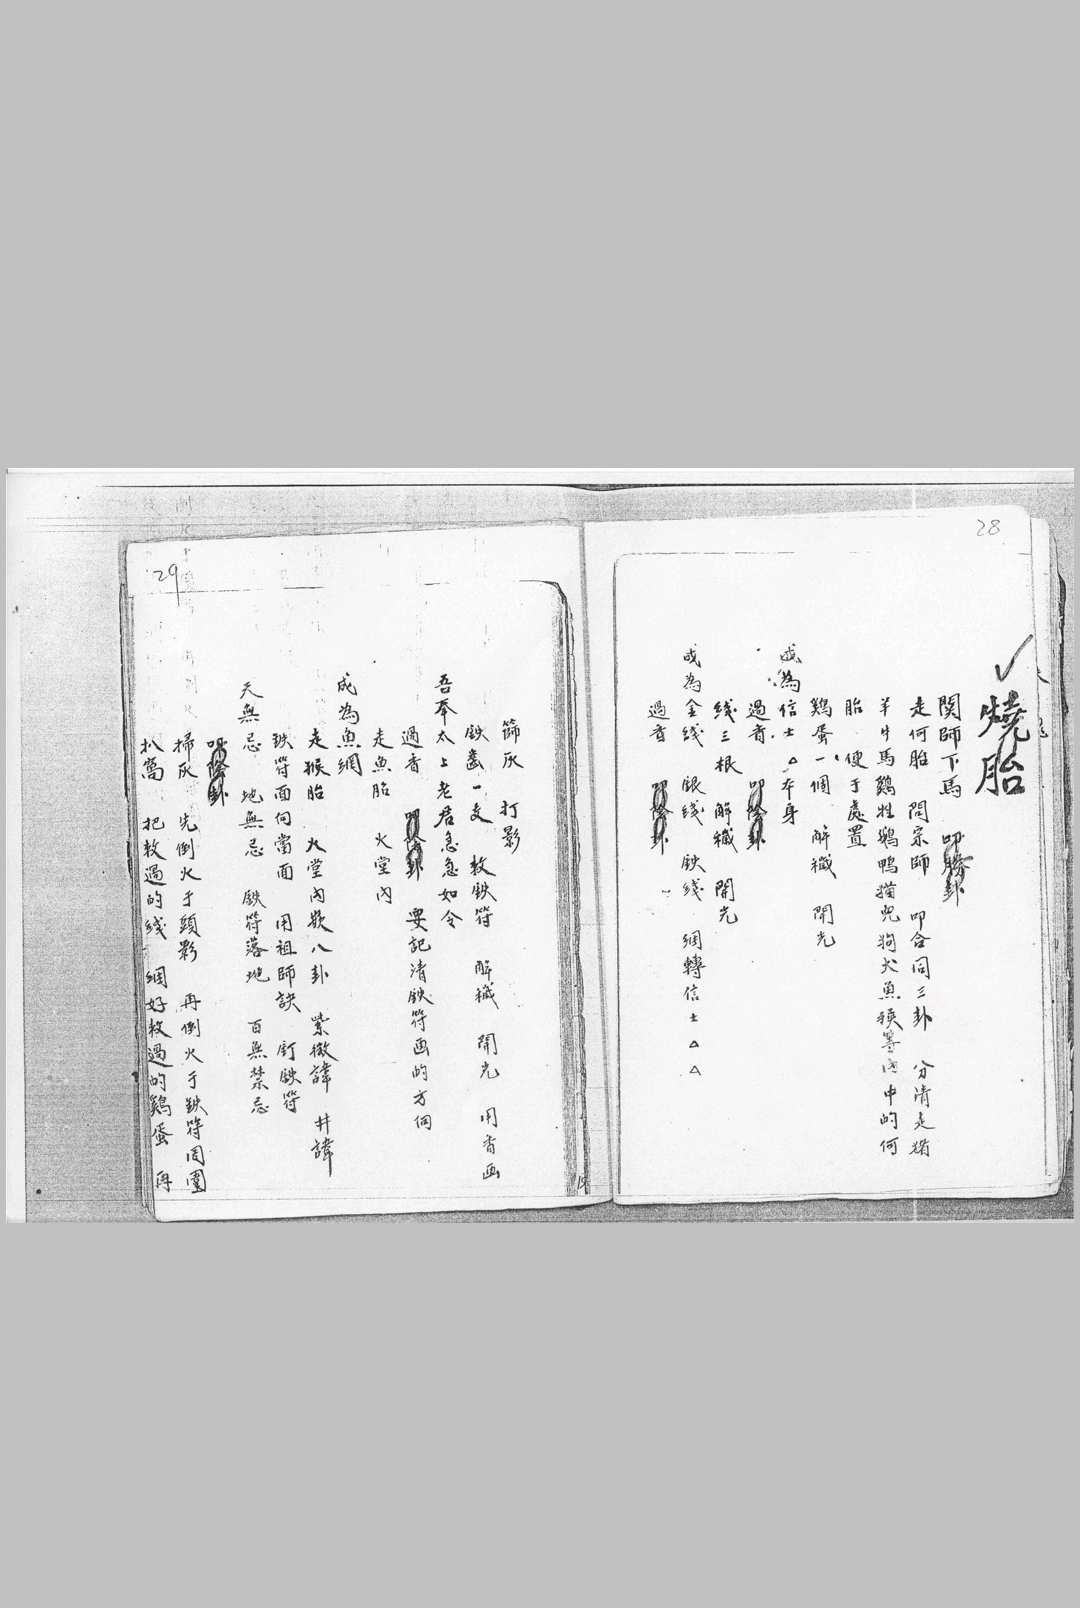 28
燒胎
関師下馬 叩勝卦
走何胎 問宗師 叩合同三卦 分清走猪
羊牛馬鷄牲鵝鴨猫兜狗犬魚猴等內中的何
胎 便于處置
鷄蛋一個 解穢 開光
成為信士△本身
過香 叩陰卦
綫三根 解穢 開光
成為金綫 銀綫 鉄綫 綑轉信士△△
過香 叩陰卦
29
篩灰 打影
鉄齒一支 敕鉄符 解穢 開光 用香画
吾奉太上老君急急如令
過香 叩陰卦 要記清鉄符画的方向
走魚胎 火堂內
成為魚網
走猴胎 火堂內 八卦 紫微諱 井諱
鉄符面向當面 用祖師訣 釘鉄符
天無忌 地無忌 鉄符落地 百無禁忌
叩陰卦
掃灰 先倒火于頭影 再倒火于鉄符周圍
扒窩 把敕過的綫 綑好敕過的鷄蛋 再